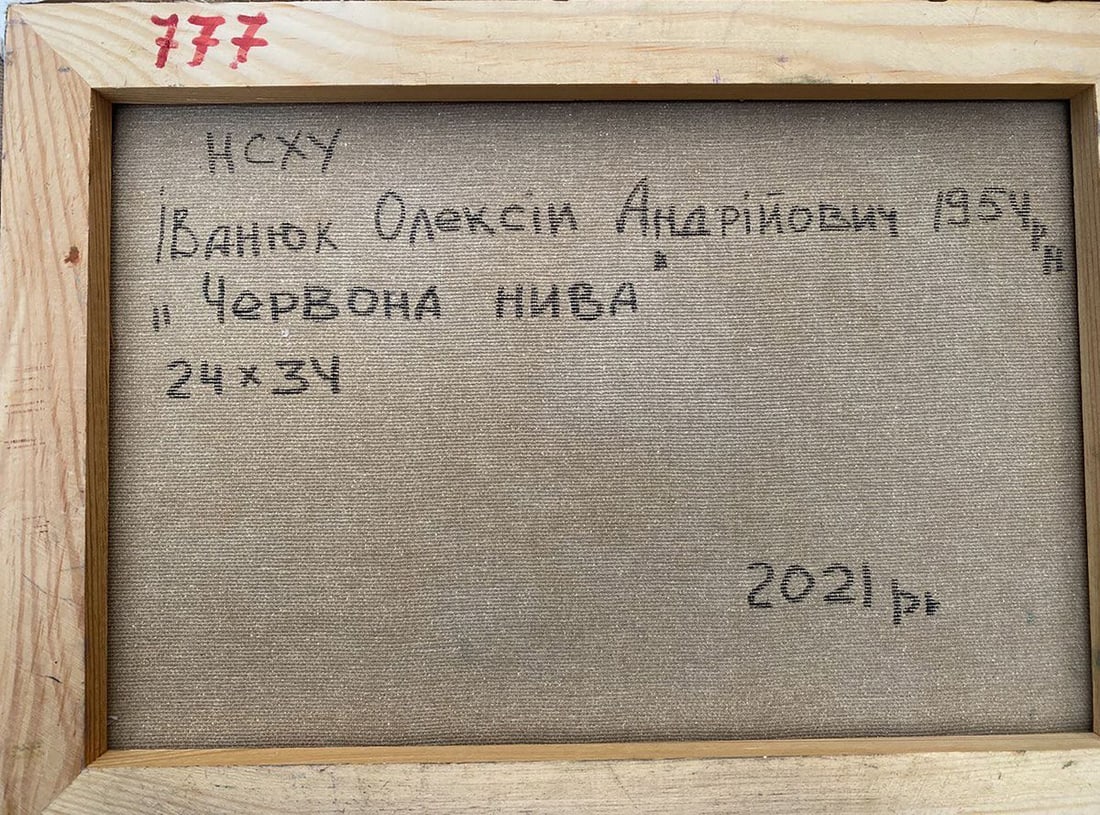 777
НСХУ
Іванюк Олексій Андрійович 1954 р н
"Червона нива"
24 x 34
2021 рк